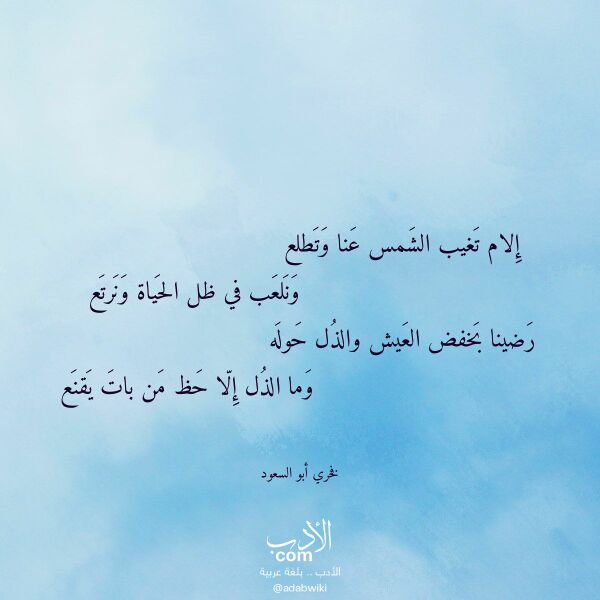 إِلام تَغيب الشَمس عَنا وَتَطلع
وَنَلعَب في ظل الحَياة وَنَرتَع
رَضينا بَخفض العَيش والذُل حَولَه
وَما الذُل إِلّا حَظ مَن باتَ يَقنَع
فخري أبو السعود
الأدب
com
الأدب .. بلغة عربية
@adabwiki